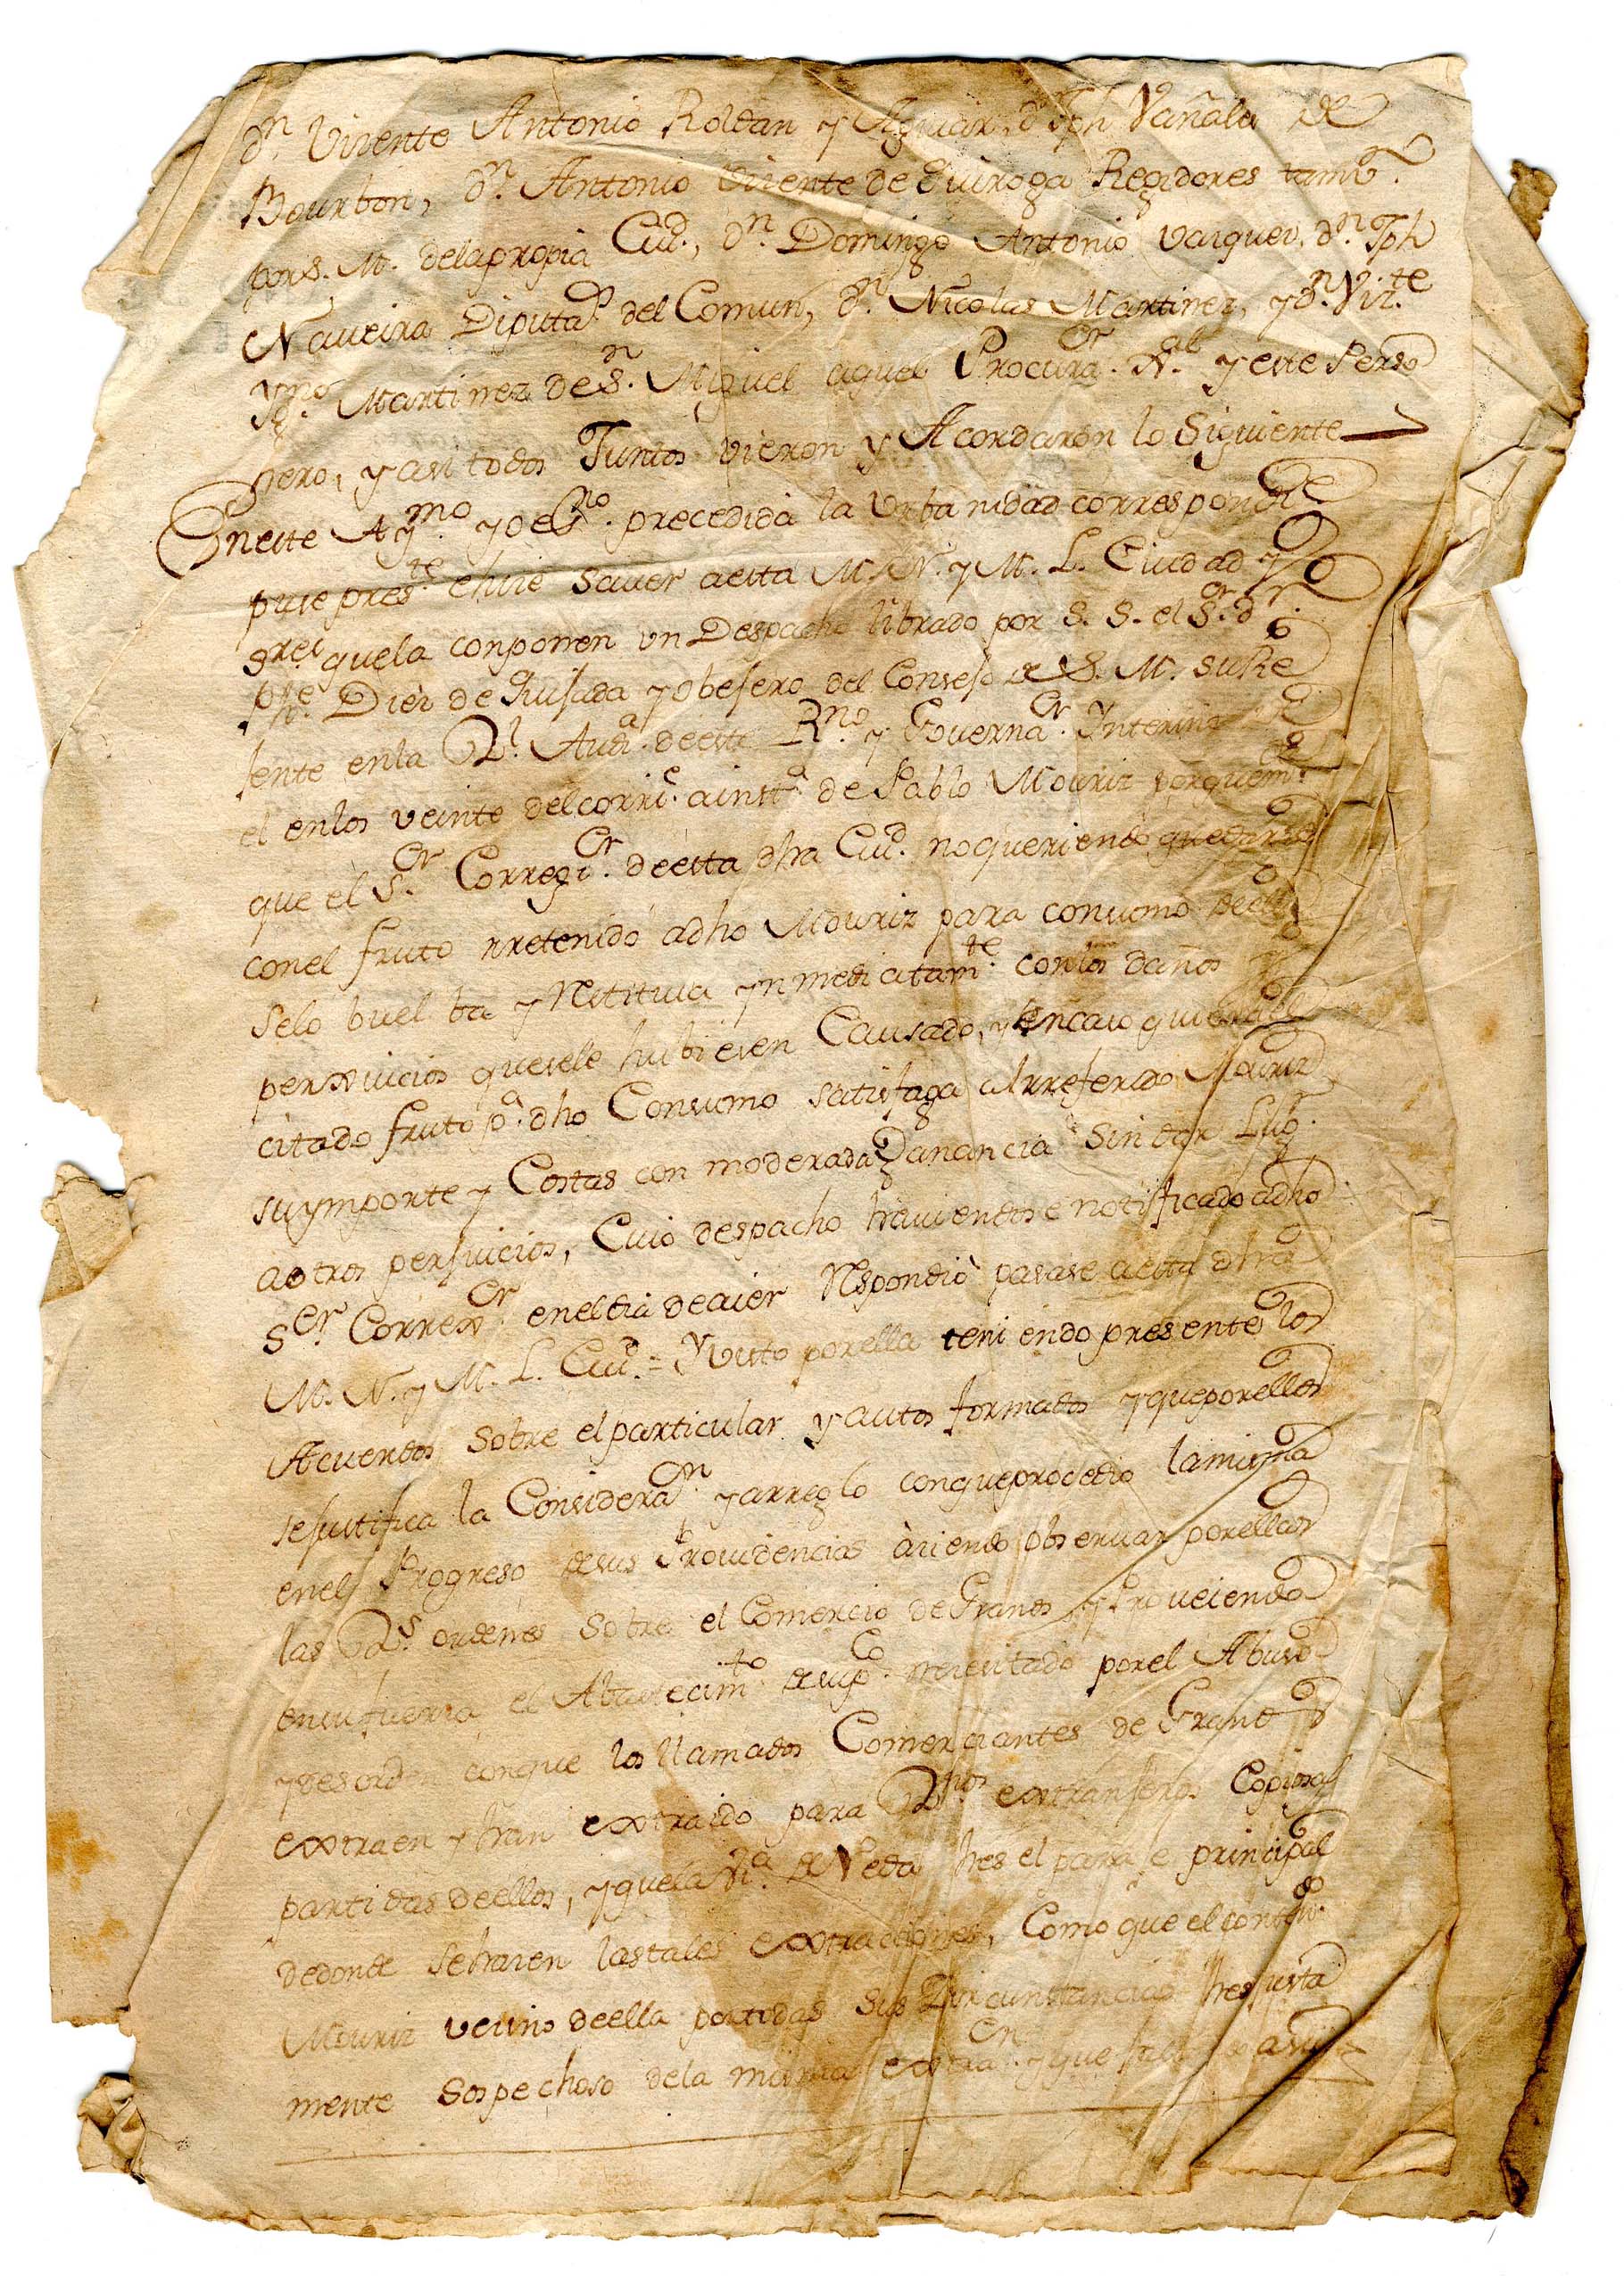 dn. Vizente Antonio Roldan y Aguiar, dn Jph Vañala de
Bourbon, dn. Antonio Vizente de Quiroga Regidores tamn.
por S. M. dela propia Ciud., dn. Domingo Antonio Vazquez, dn. Jph
Naveira Diputads. del Comun, dn. Nicolas Martinez, y dn. Vizte.
Martinez de Sn. Miguel aquel Procurador. Gral. y este Perso
nero, y asi todos Juntos vieron y Acordaron lo Siguiente
En este Aymo. yo esno. precedida la Urbanidad correspondte
puse preste. e hize saver a esta M. N. y M. L. Ciudad y
Sres que la conponen un Despacho librado por S. S. el Sor. dn
phe. Diez de Quijada y Obejero del Consejo de S. M. su Re
jente en la Rl. Auda. de este Rno. y Governador. Interino
el en los veinte del corrte. a insta. de Pablo Mouriz por quem
que el Sor. Corregior. de esta dha Ciud. no queriendo quedarse
con el fruto rretenido a dho Mouriz para consumo de ella
selo buelba y Restituia ynmediatamte. con los daños y
perxuicios quesele hubiesen Causado, y en caso quiera el
citado fruto pa. dho Consumo satisfaga al rreferido Mouriz
su ymporte y Costas con moderada Ganancia sin dar Lugr.
a otros perjuicios, Cuio despacho haviendose notificado a dho
Sor. Correxor. en el dia de aier Respondiò pasase a esta dha
M. N. y M. L. Ciud. = Y visto por ella teniendo presente los
Acuerdos sobre el particular y autos formados y que por ellos
se justifica la Consideran. y arreglo conque procedio la misma
en el Progreso de sus Providencias àziendo observar por ellas
las Rs. ordenes sobre el Comercio de Granos y Proveiendo
en su fuerza el Abastecimto. de su pco. nezesitado por el Abuso
y desorden conque los llamados Comerciantes de Granos
extraen y han extraido para Rnos extranjeros Copiosas
partidas de ellos, y que la Va. de Neda hes el paraje principal
de donde se hazen las tales extracciones, Como que el contdo.
Mouriz vezino de ella por todas sus Zircunstancias hes justa
mente sospechoso dela misma extran. y que